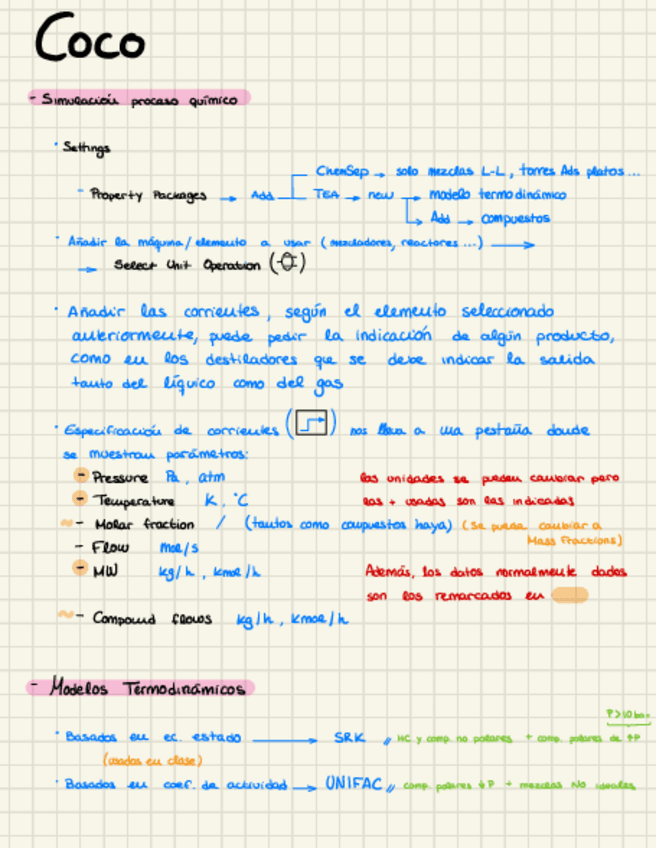 Coco
- Simulación proceso químico
· Settings
ChemSep → solo mezclas L-L, torres Ads platos...
- Property Packages → Add TEA → new → modelo termodinámico
Add → compuestos
· Añadir la máquina/elemento a usar (mezcladores, reactores...) →
→ Select Unit Operation ( )
· Añadir las corrientes, según el elemento seleccionado
anteriormente, puede pedir la indicación de algún producto,
como en los destiladores que se debe indicar la salida
tanto del líquico como del gas
· Especificación de corrientes ( ) nos lleva a una pestaña donde
se muestran parámetros:
- Pressure Pa, atm
las unidades se pueden cambiar pero
- Temperature K, °C
las + usadas son las indicadas
~ - Molar fraction / (tantos como compuestos haya) (Se puede cambiar a
Mass Fractions)
- Flow mol/s
- MW kg/h, kmol/h
Además, los datos normalmente dados
son los remarcados en
~ - Compound flows kg/h, kmol/h
- Modelos Termodinámicos
P>10 bar
· Basados en ec. estado → SRK // HC y comp. no polares + comp. polares de ↑P
(usados en clase)
· Basados en coef. de actividad → UNIFAC // comp. polares ↓P + mezclas No ideales